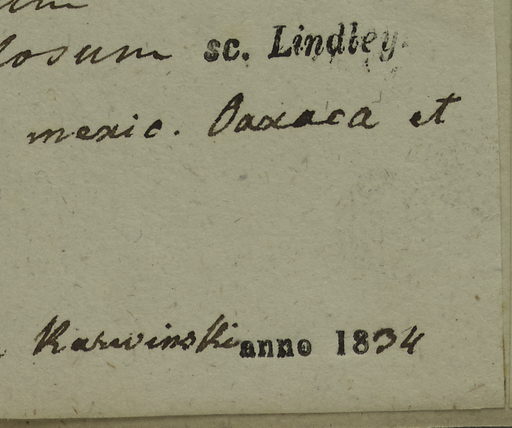 losum sc. Lindley.
mexic. Oaxaca et
Karwinski anno 1834